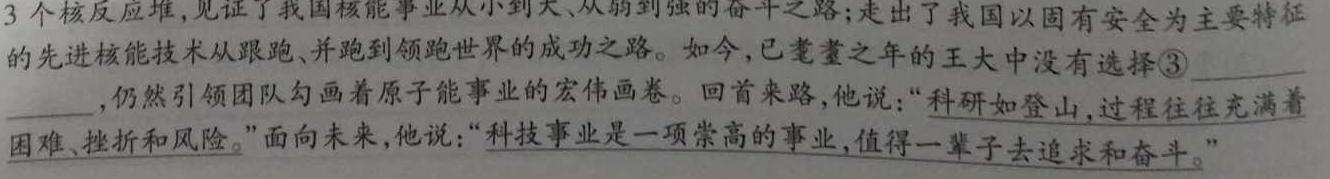 3 个核反应堆,见证了我国核能事业从小到大、从弱到强的奋斗之路;走出了我国以固有安全为主要特征
的先进核能技术从跟跑、并跑到领跑世界的成功之路。如今,已耄耋之年的王大中没有选择③________
________,仍然引领团队勾画着原子能事业的宏伟画卷。回首来路,他说:“科研如登山,过程往往充满着
困难、挫折和风险。”面向未来,他说:“科技事业是一项崇高的事业,值得一辈子去追求和奋斗。”